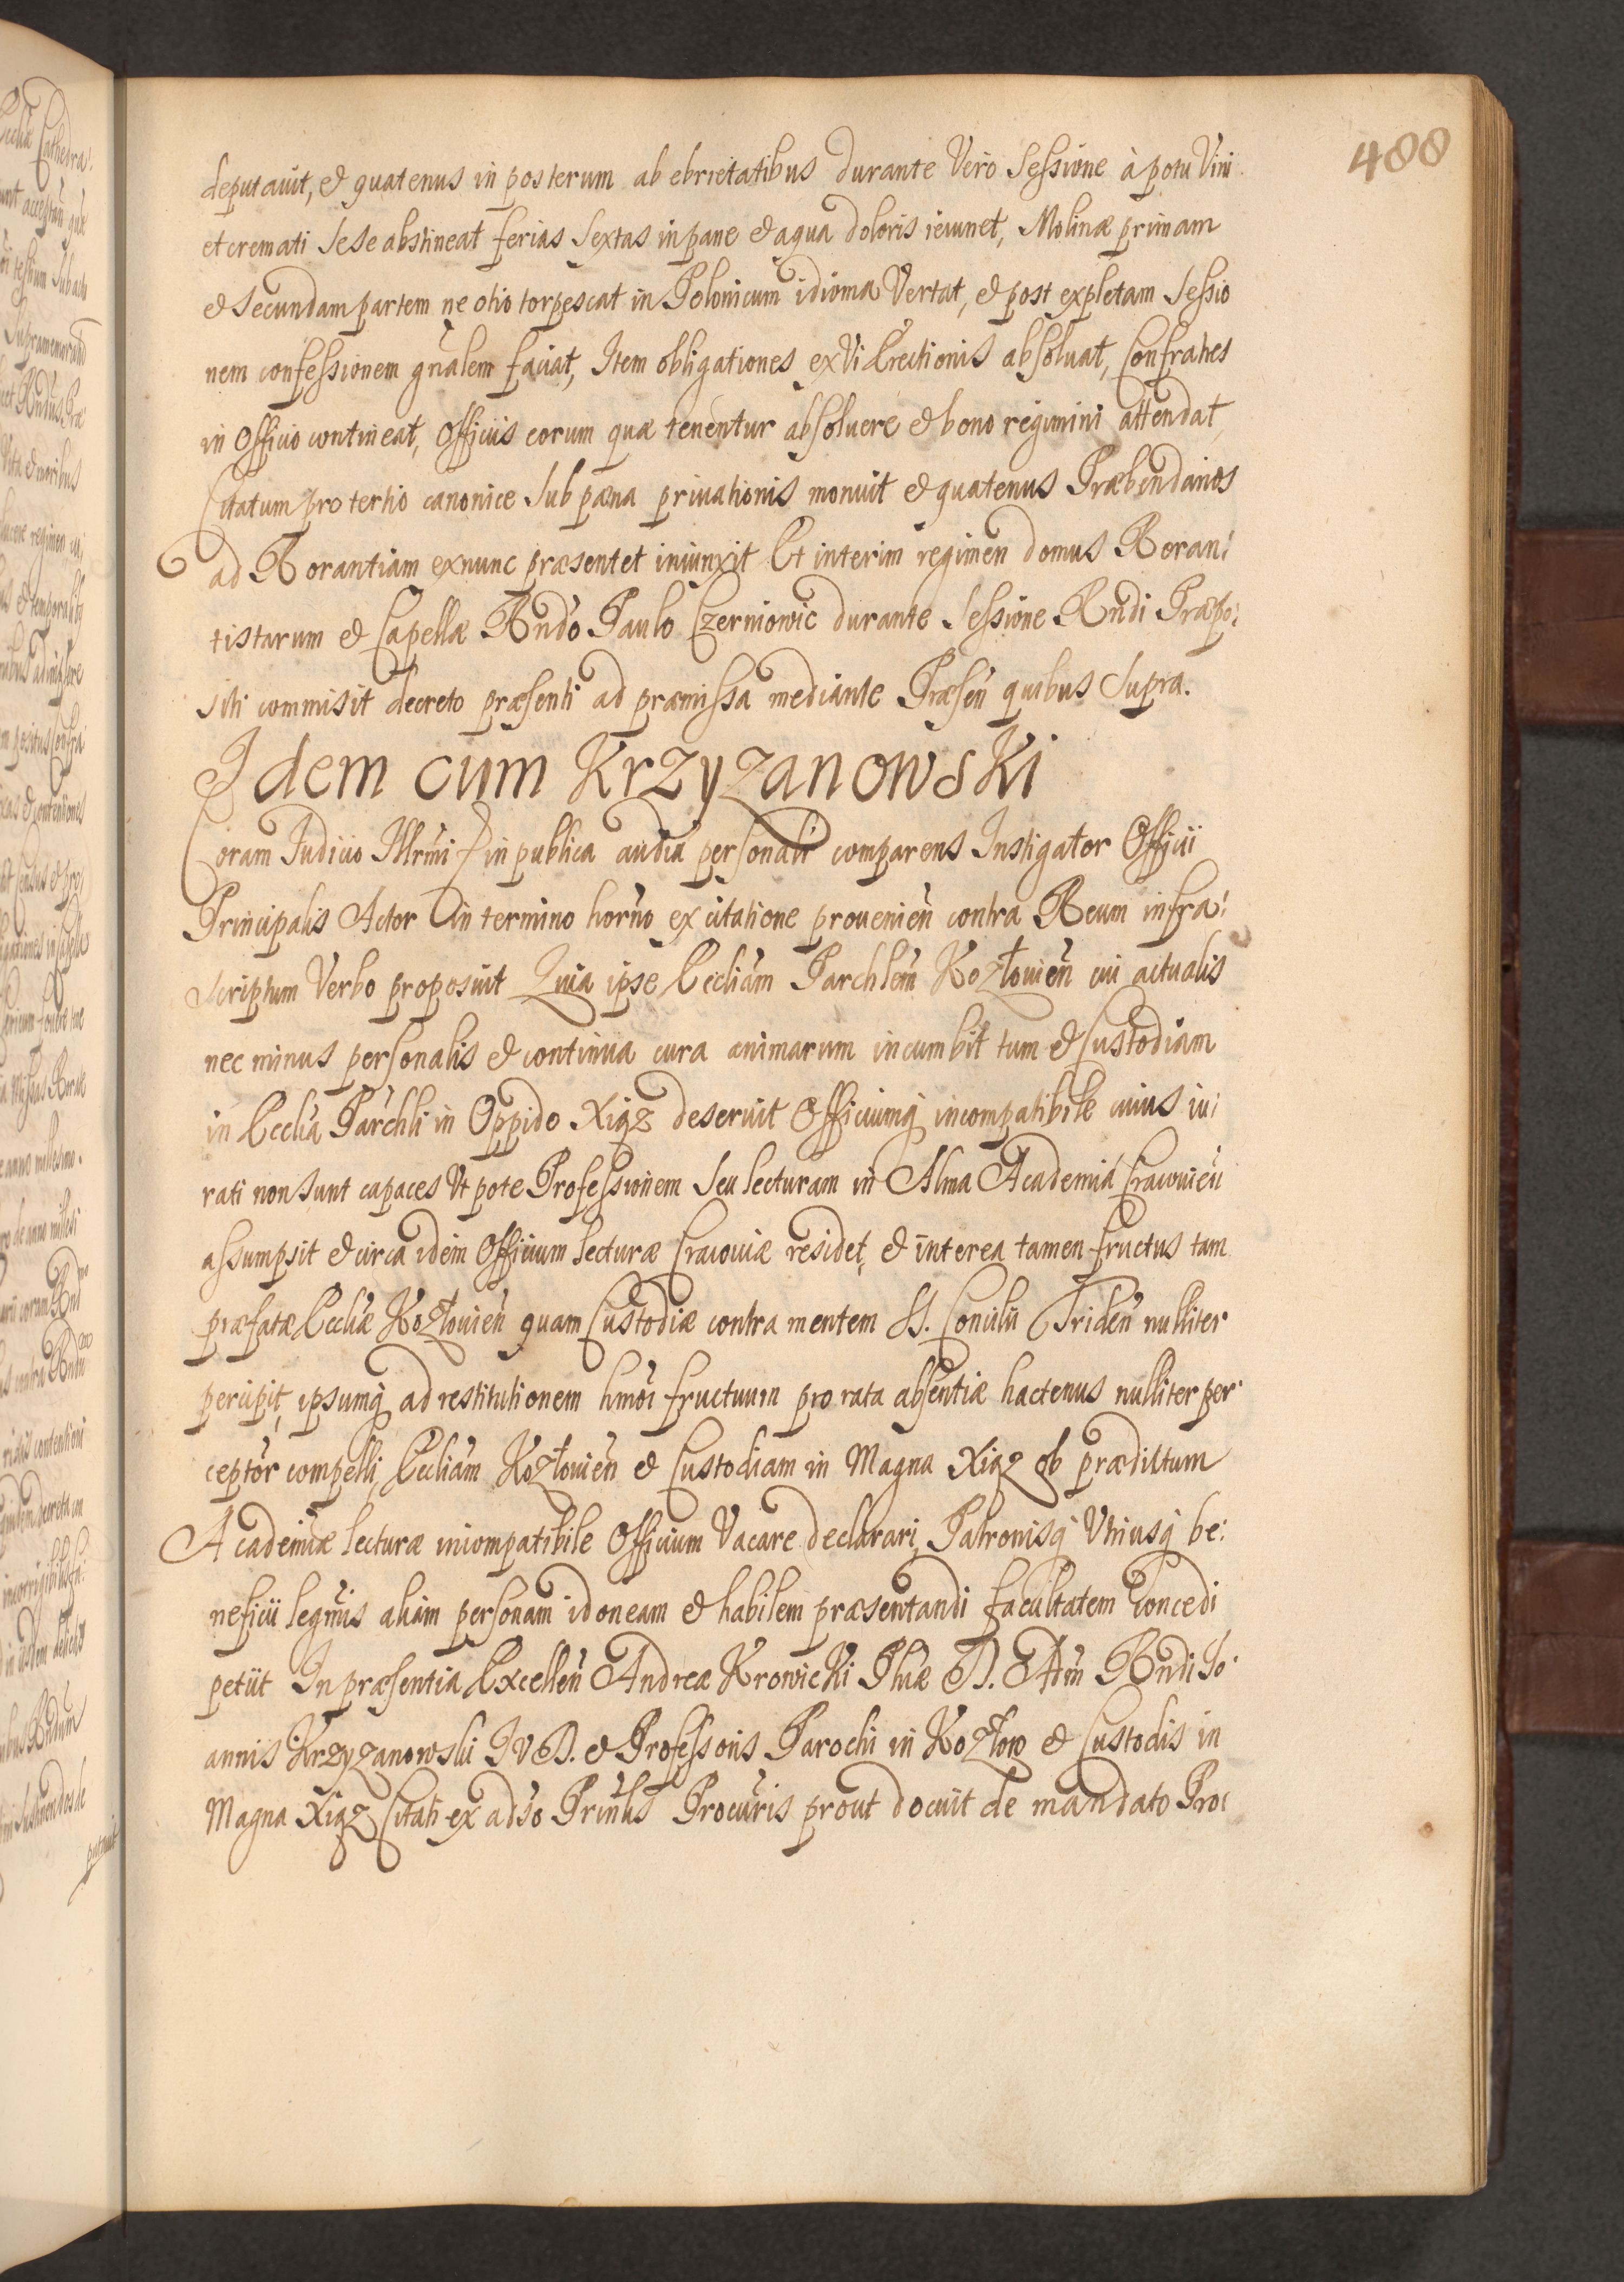 488
deputauit, et quatenus in posterum ab ebrietatibus durante Vero Sessione à potu Vini
et cremati sese abstineat ferias sextas in pane et aqua doloris ieiunet, Molinæ primam
et secundam partem ne otio torpescat in Polonicum idioma Vertat, et post expletam Sessio
nem confessionem gñalem faciat, Item obligationes ex Vi Erectionis absoluat, Confratres
in Officio contineat, Officiis eorum quæ tenentur absoluere et bono regimini attendat,
Citatum pro tertio canonice sub pæna priuationis monuit et quatenus Præbendarios
ad Rorantiam exnunc præsentet iniunxit Et interim regimen domus Roran:
tistarum et Capellæ Rñdo Paulo Czerniowic durante Sessione Rndi Præpo:
siti commisit decreto præsenti ad præmissa mediante Præseñ quibus supra.
Idem cum Krzyzanowski
Coram Iudicio Illrmi in publica audia personalr comparens Instigator Officii
Principalis Actor in termino horño ex citatione prouenieñ contra Reum infra:
scriptum Verbo proposuit Quia ipse Eccliam Parchlem Kozłouieñ cui actualis
nec minus personalis et continua cura animarum incumbit tum et Custodiam
in Ecclia Parchli in Oppido Xiąz deseruit Officiumq incompatibile cuius iu:
rati non sunt capaces Vt pote Professionem seu lecturam in Alma Academia Cracouieñ
assumpsit et circa idem Officium lecturæ Cracouiæ residet, et interea tamen fructus tam
præfatæ Eccliæ Kozłouieñ quam Custodiæ contra mentem SS. Concilii Trideñ nulliter
percipit, ipsumq ad restitutionem hmoi fructuum pro rata absentiæ hactenus nulliter per:
ceptor compelli, Eccliam Kozłouieñ et Custodiam in Magna Xiąz ob prædictum
Academiæ lecturæ incompatibile Officium Vacare declarari, Patronisq Vtriusq be:
neficii legmis aliam personam idoneam et habilem præsentandi facultatem concedi
petiit In præsentia Excelleñ Andreæ Krowicki Phiæ D. Rndi Jo:
annis Krzyzanowski IVD. et Professoris Parochi in Kozłow et Custodis in
Magna Xiąz Citati ex adso Prinlis Procuris prout docuit de mandato Pro: